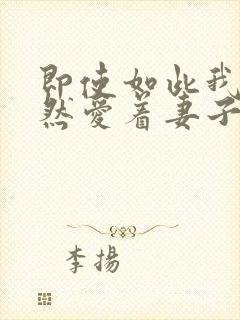 即使如此我
然愛着妻子
李揚